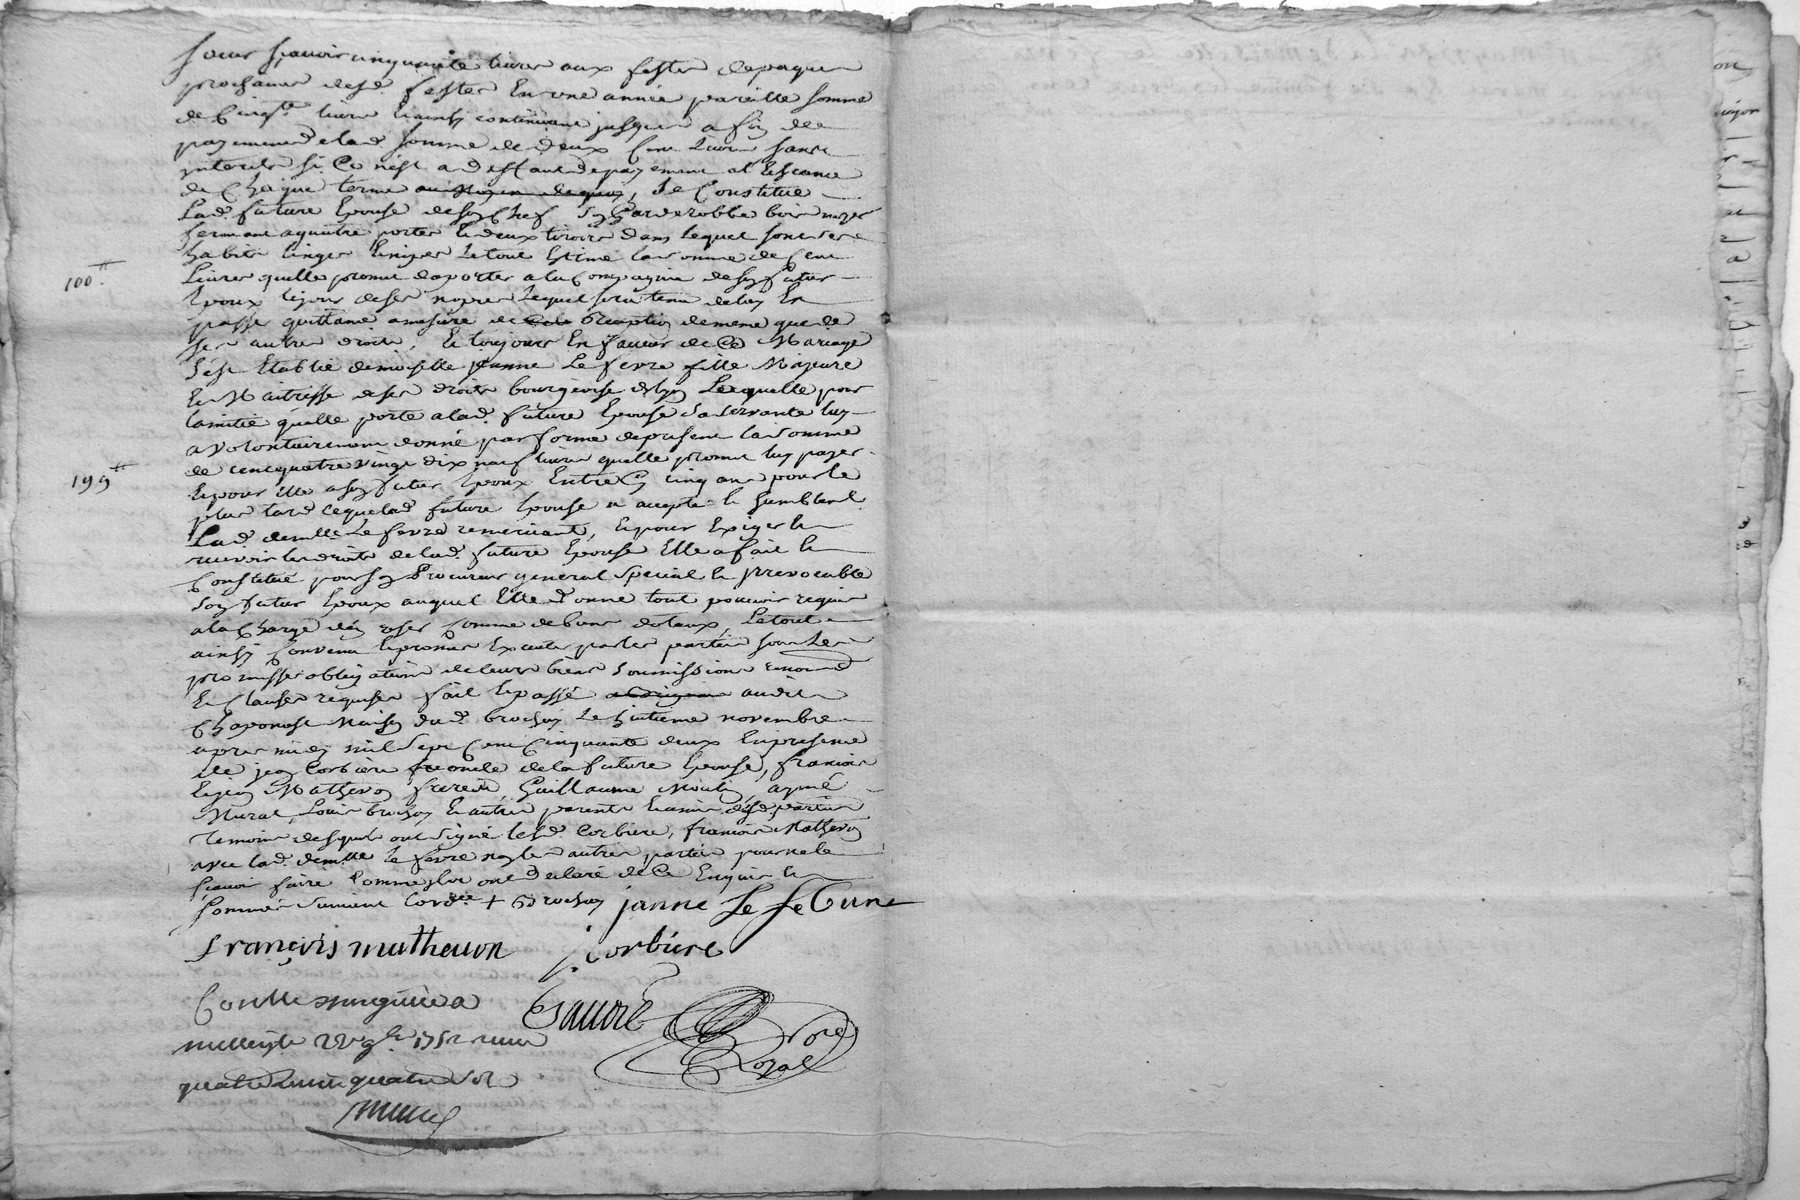 soeur sçavoir cinquante livres aux festes de paques
prochaines desd. festes En une année pareille somme
de Cinqte livres Et ainsy continuant jusques a fin de
payement de lad. somme de deux Cent Livres sans
interets si Ce n'est a deffaut de payement a l'Esceance
de Chaque terme, Se Constitue
Lad. future Epouse de son Chef un garderobbe bois noyer
fermant a quatre portes Et deux tiroirs dans lequel sont ses
habits linges Le tout Estimé la somme de Cent
100 ₶.
Livres quelle promet daporter a la Compagnie de son futur
Epoux le jour de ses nopces Lequel sera tenu de luy En
passer quittance a mesure de Reception de meme que de
ses autres droits, Et toujours En faveur de Ce Mariage
s'est Etablie demoiselle jeanne Le fevre fille Majeure
Et Maitresse de ses droits bourgeoise de lyon Laquelle pour
lamitié quelle porte a lad. future Epouse sa servante luy
a volontairement donné par forme de present la somme
de cent quatre vingt dix neuf livres quelle promet luy payer
199 ₶
Et pour Elle a son futur Epoux Entre Cy cinq ans pour le
plus tard ce que lad. future Epouse a accepté Et humblemt.
Lad. demlle Le fevre remerciant, Et pour Exiger Et
recevoir les droits de lad. future Epouse Elle a fait Et
Constitué pour son Procureur general special Et Irrevocable
son futur Epoux auquel Elle donne tout pouvoir requis
a la Charge d'en user Comme de biens dotaux, Le tout
ainsy Convenu Et promis Executer par les parties sous Les
promesses obligations de leurs biens soumissions renond.
Et Clauses requises fait Et passé audit
Chaponost Maison dud. brochay Le huitieme novembre
apres midy mil sept Cent Cinquante deux En presence
de jean Corbiere oncle de la future Epouse, francois
Et jean Mathevon freres, Guillaume Moulin, aymé
Murat, Louis brochay Et autres parents Et amis desd. parties
temoins desquels ont signé lesd. Corbiere, francois Mathevon
avec lad. demlle le fevre non les autres parties pour ne le
sçavoir faire Comme ils ont declaré de Ce Enquis Et
sommés suivant Lord.ce + Brochay janne Le feburе
françois mathevon j. Corbiere
Conllé a
9bre 1752 reçu
quatre Livres quatre sols
Nore
Royal